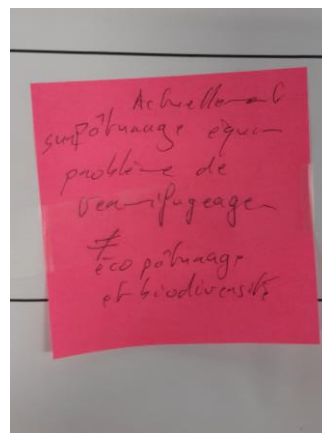 Actuellement
surpâturage équin
problème de
vermifugeage
≠
éco pâturage
et biodiversité